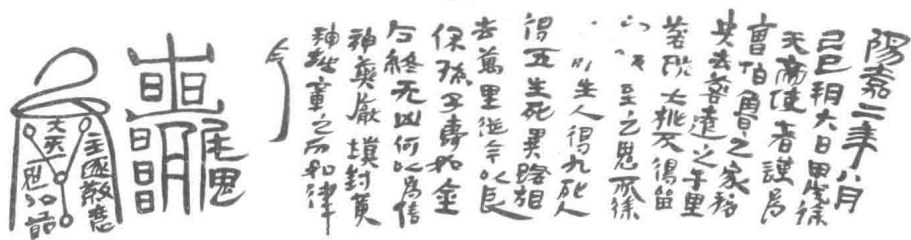 陽嘉二年八月
己巳朔六日甲戌徐
天帝使者謹為
曹伯魯之家移
央去咎遠之千里
咎 大桃不得留
至之鬼所徐
生人得九死人
得五生死異路相
去萬里從今以長
保孫子壽如金
石終无凶何以為信
神藥厭填封黃
神越章之印如律
令
尾鬼
大天一
主逐敦惡
鬼以節